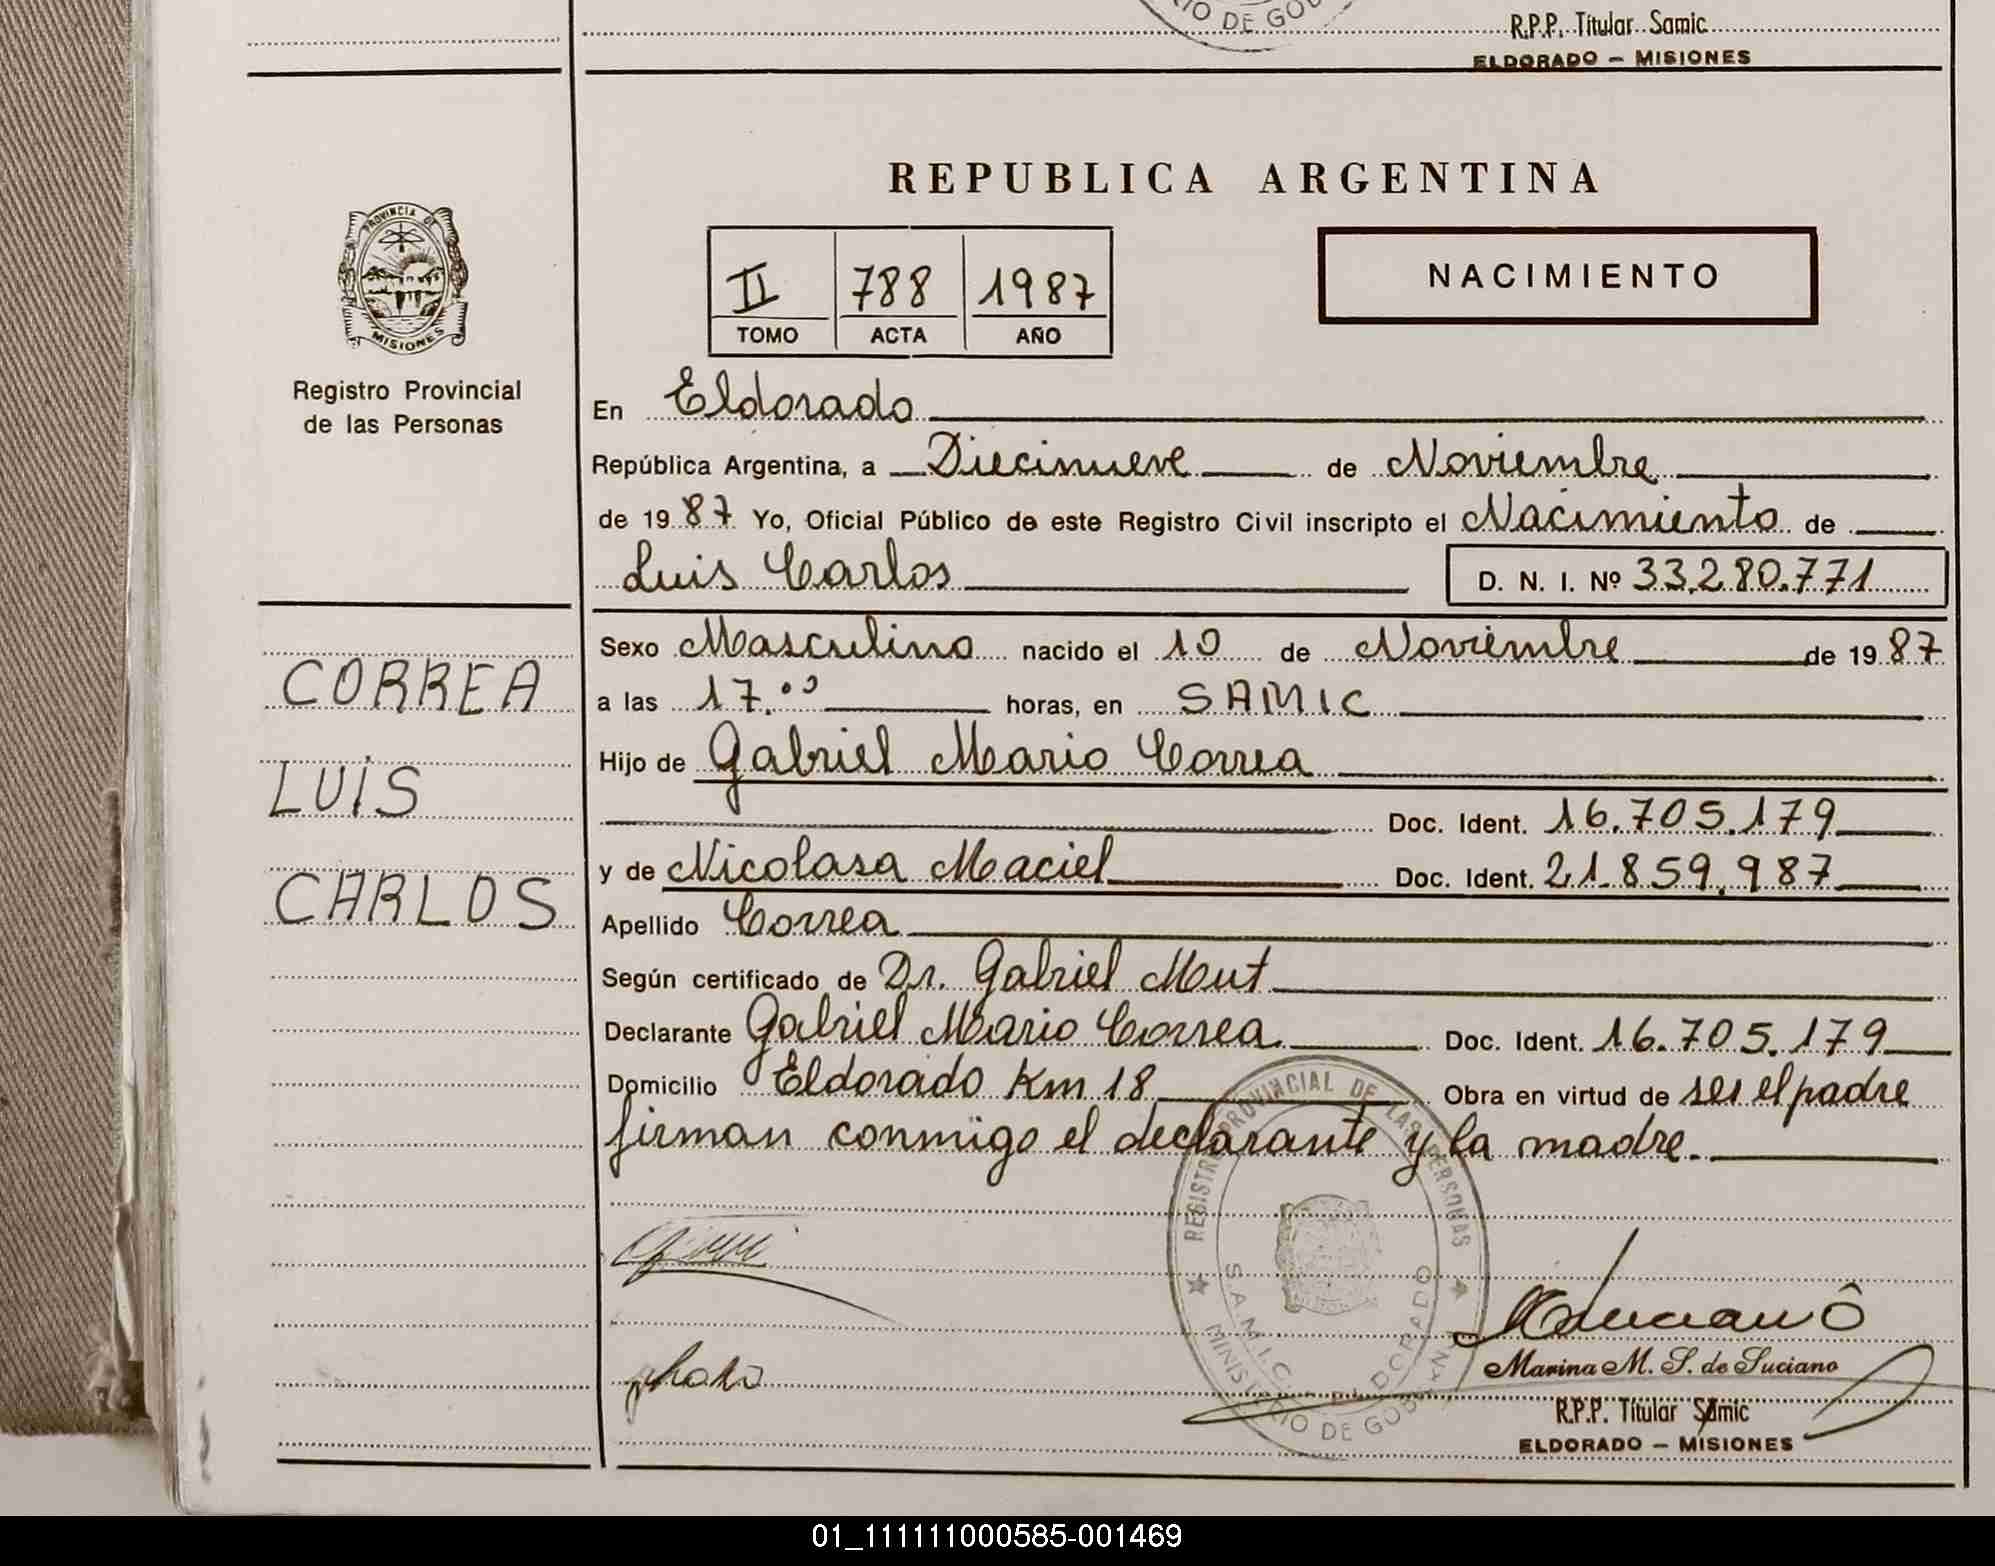 RIO DE GOB
R.P.P. Titular Samic
ELDORADO — MISIONES
REPUBLICA ARGENTINA
PROVINCIA DE
MISIONES
II 788 1987
TOMO ACTA AÑO
NACIMIENTO
Registro Provincial
de las Personas
En Eldorado
República Argentina, a Diecinueve de Noviembre
de 19 87 Yo, Oficial Público de este Registro Civil inscripto el Nacimiento de
Luis Carlos D. N. I. Nº 33.280.771
CORREA
LUIS
CARLOS
Sexo Masculino nacido el 10 de Noviembre de 19 87
a las 17.00 horas, en SAMIC
Hijo de Gabriel Mario Correa
Doc. Ident. 16.705.179
y de Nicolasa Maciel Doc. Ident. 21.859.987
Apellido Correa
Según certificado de Dr. Gabriel Mut
Declarante Gabriel Mario Correa. Doc. Ident. 16.705.179
Domicilio Eldorado Km 18 Obra en virtud de ser el padre
firman conmigo el declarante y la madre.
REGISTRO PROVINCIAL DE LAS PERSONAS
S.A.M.I.C. ELDORADO
MINISTERIO DE GOBIERNO
Marina M. S. de Luciano
R.P.P. Titular Samic
ELDORADO — MISIONES
01_111111000585-001469